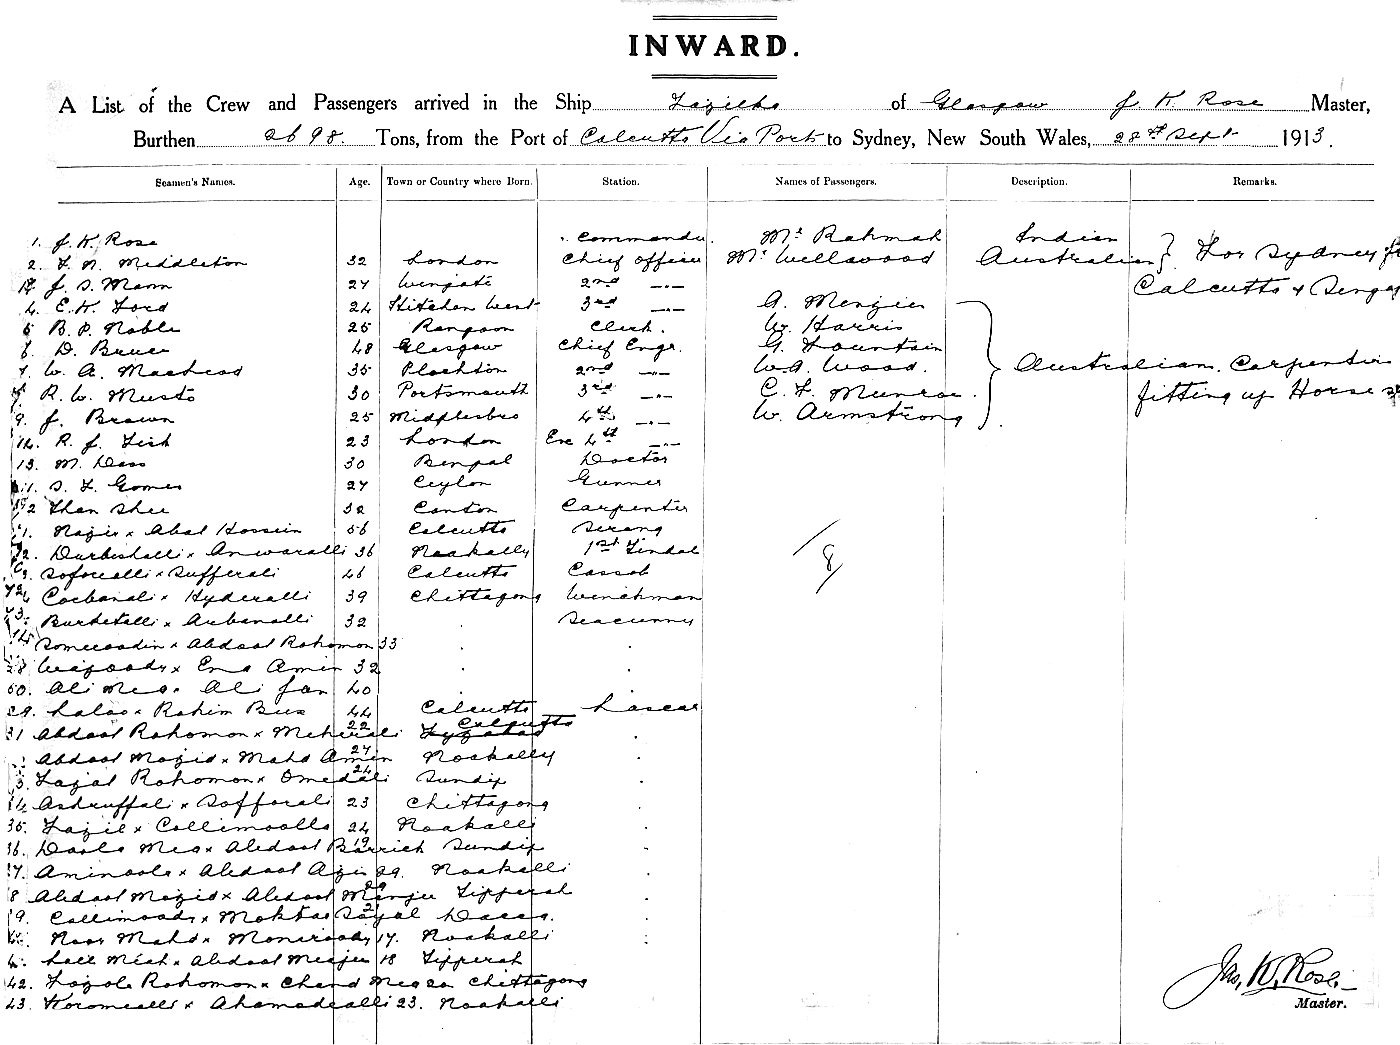 INWARD.
A List of the Crew and Passengers arrived in the Ship Fazilka of Glasgow J. K. Rose Master,
Burthen 2698. Tons, from the Port of Calcutta Via Ports to Sydney, New South Wales, 28th Sept 1913.
Seamen's Names. Age. Town or Country where Born. Station. Names of Passengers. Description. Remarks.
1. J. K. Rose Commander. Mr Rahmah Indian
2. F. N. Middleton 32 London Chief Officer Mr Wellwood Australian } For Sydney
J. S. Mann 27 Wingate 2nd —"— Calcutta &
4. E. K. Ford 24 3rd —"— A. Menzies
5 B. P. Noble 25 Rangoon Clerk. W. Harris
6 D. Bruce 48 Glasgow Chief Engr. G. Fountain
7. W. A. Macleod 35 Plockton 2nd —"— W. A. Wood. Australian Carpenters
R. W. Musto 30 Portsmouth 3rd —"— C. F. Munroe. fitting up Horse
9. J. Brown 25 Middlesbro 4th —"— W. Armstrong
R. J. Fish 23 London 4th —"—
13. M. Dass 30 Bengal Doctor
11. S. F. Gomes 27 Ceylon Gunner
2 Than Shee 32 Canton Carpenter
1. Nazir x Abal Hossein 56 Calcutta Serang
2. Durbeshalli x Anwaralli 36 Noakally 1st Tindal
3. Soforealli x Sufferali 46 Calcutta Cassab
8
4 Corbanali x Hyderalli 39 Chittagong Winchman
Burketalli x Aubanalli 32 . Seacunny
Someroodin x Abdool Rohomon 33 . .
28 Wazoody x Ena Amin 32 . .
30. Ali Mea x Ali Jan 40 . .
29. Laloo x Rohim Bux 44 Calcutta Lascar
31 Abdool Rohomon x Meherali 22 Calcutta .
Abdool Mozid x Mahd Amin 27 Noakally .
3 Fazal Rohomon x Omedali 24 Sundip .
34 Ashruffali x Sofforali 23 Chittagong .
35. Fazil x Collimoolla 24 Noakalli .
36. Doola Mea x Abdool Barrich 19 Sundip .
37 Aminoola x Abdool Aziz 29. Noakalli .
8 Abdool Mozid x Abdool Tipperah .
9. Collimoody x Moktar Dacca. .
Noor Mahd x Moneroody 17. Noakalli .
Lall Miah x Abdool 18 Tipperah
42. Fazole Rohomon x Chand Mea 20 Chittagong
43. Koromealli x Ahamadealli 23. Noakalli
Jas. K. Rose.
Master.